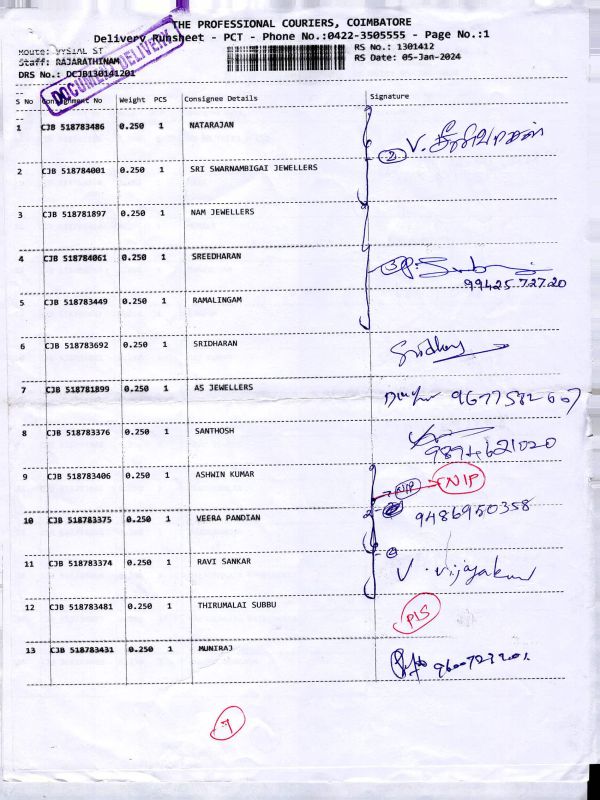 THE PROFESSIONAL COURIERS, COIMBATORE
Delivery Runsheet - PCT - Phone No.:0422-3505555 - Page No.:1
RS No.: 1301412
Staff: RAJARATHINAM
RS Date: 05-Jan-2024
DRS No.: DCJB130141201
DOCUMENT DELIVERY
S No Consignment No Weight PCS Consignee Details Signature
1 CJB 518783486 0.250 1 NATARAJAN
2 V. சீனிவாசன்
2 CJB 518784001 0.250 1 SRI SWARNAMBIGAI JEWELLERS
3 CJB 518781897 0.250 1 NAM JEWELLERS
4 CJB 518784061 0.250 1 SREEDHARAN
3
99425 72720
5 CJB 518783449 0.250 1 RAMALINGAM
6 CJB 518783692 0.250 1 SRIDHARAN
Sridhar
7 CJB 518781899 0.250 1 AS JEWELLERS
9677582607
8 CJB 518783376 0.250 1 SANTHOSH
9894621020
9 CJB 518783406 0.250 1 ASHWIN KUMAR
NIP NIP
10 CJB 518783375 0.250 1 VEERA PANDIAN
9486950358
11 CJB 518783374 0.250 1 RAVI SANKAR
V. Vijayakumar
12 CJB 518783481 0.250 1 THIRUMALAI SUBBU
PLS
13 CJB 518783431 0.250 1 MUNIRAJ
7